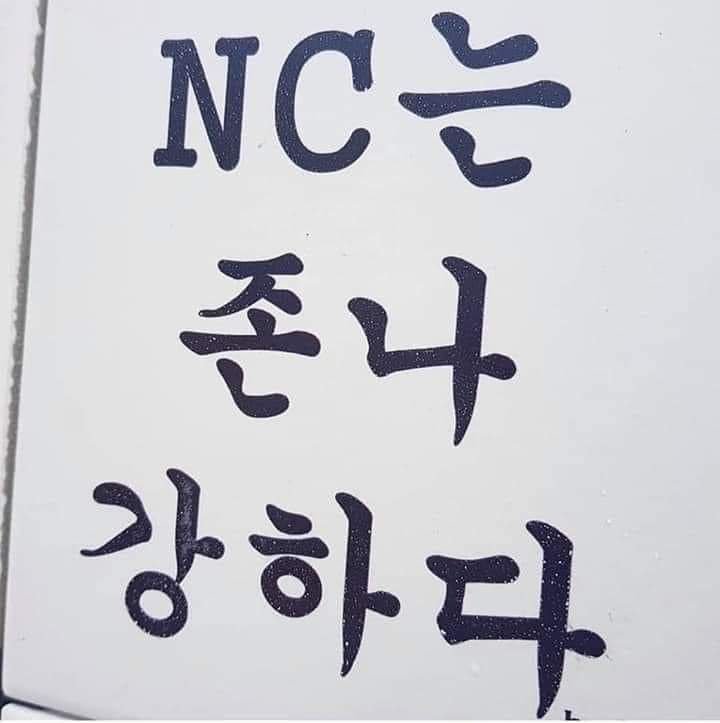 NC는
존나
강하다